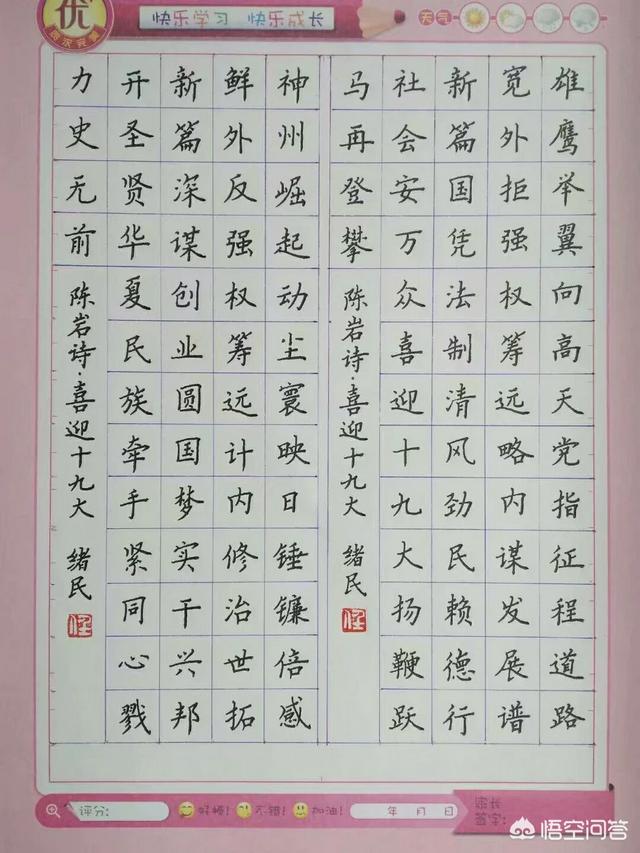 优
快乐学习 快乐成长
天气
雄鹰举翼向高天党指征程道路
宽外拒强权筹远略内谋发展谱
新篇国凭法制清风劲民赖德行
社会安万众喜迎十九大扬鞭跃
马再登攀
陈岩诗·喜迎十九大 绪民
神州崛起动尘寰映日锤镰倍感
鲜外反强权筹远计内修治世拓
新篇深谋创业圆国梦实干兴邦
开圣贤华夏民族牵手紧同心戮
力史无前
陈岩诗·喜迎十九大 绪民
评分: 好棒! 不错! 加油! 年 月 日
家长
签字:
悟空问答